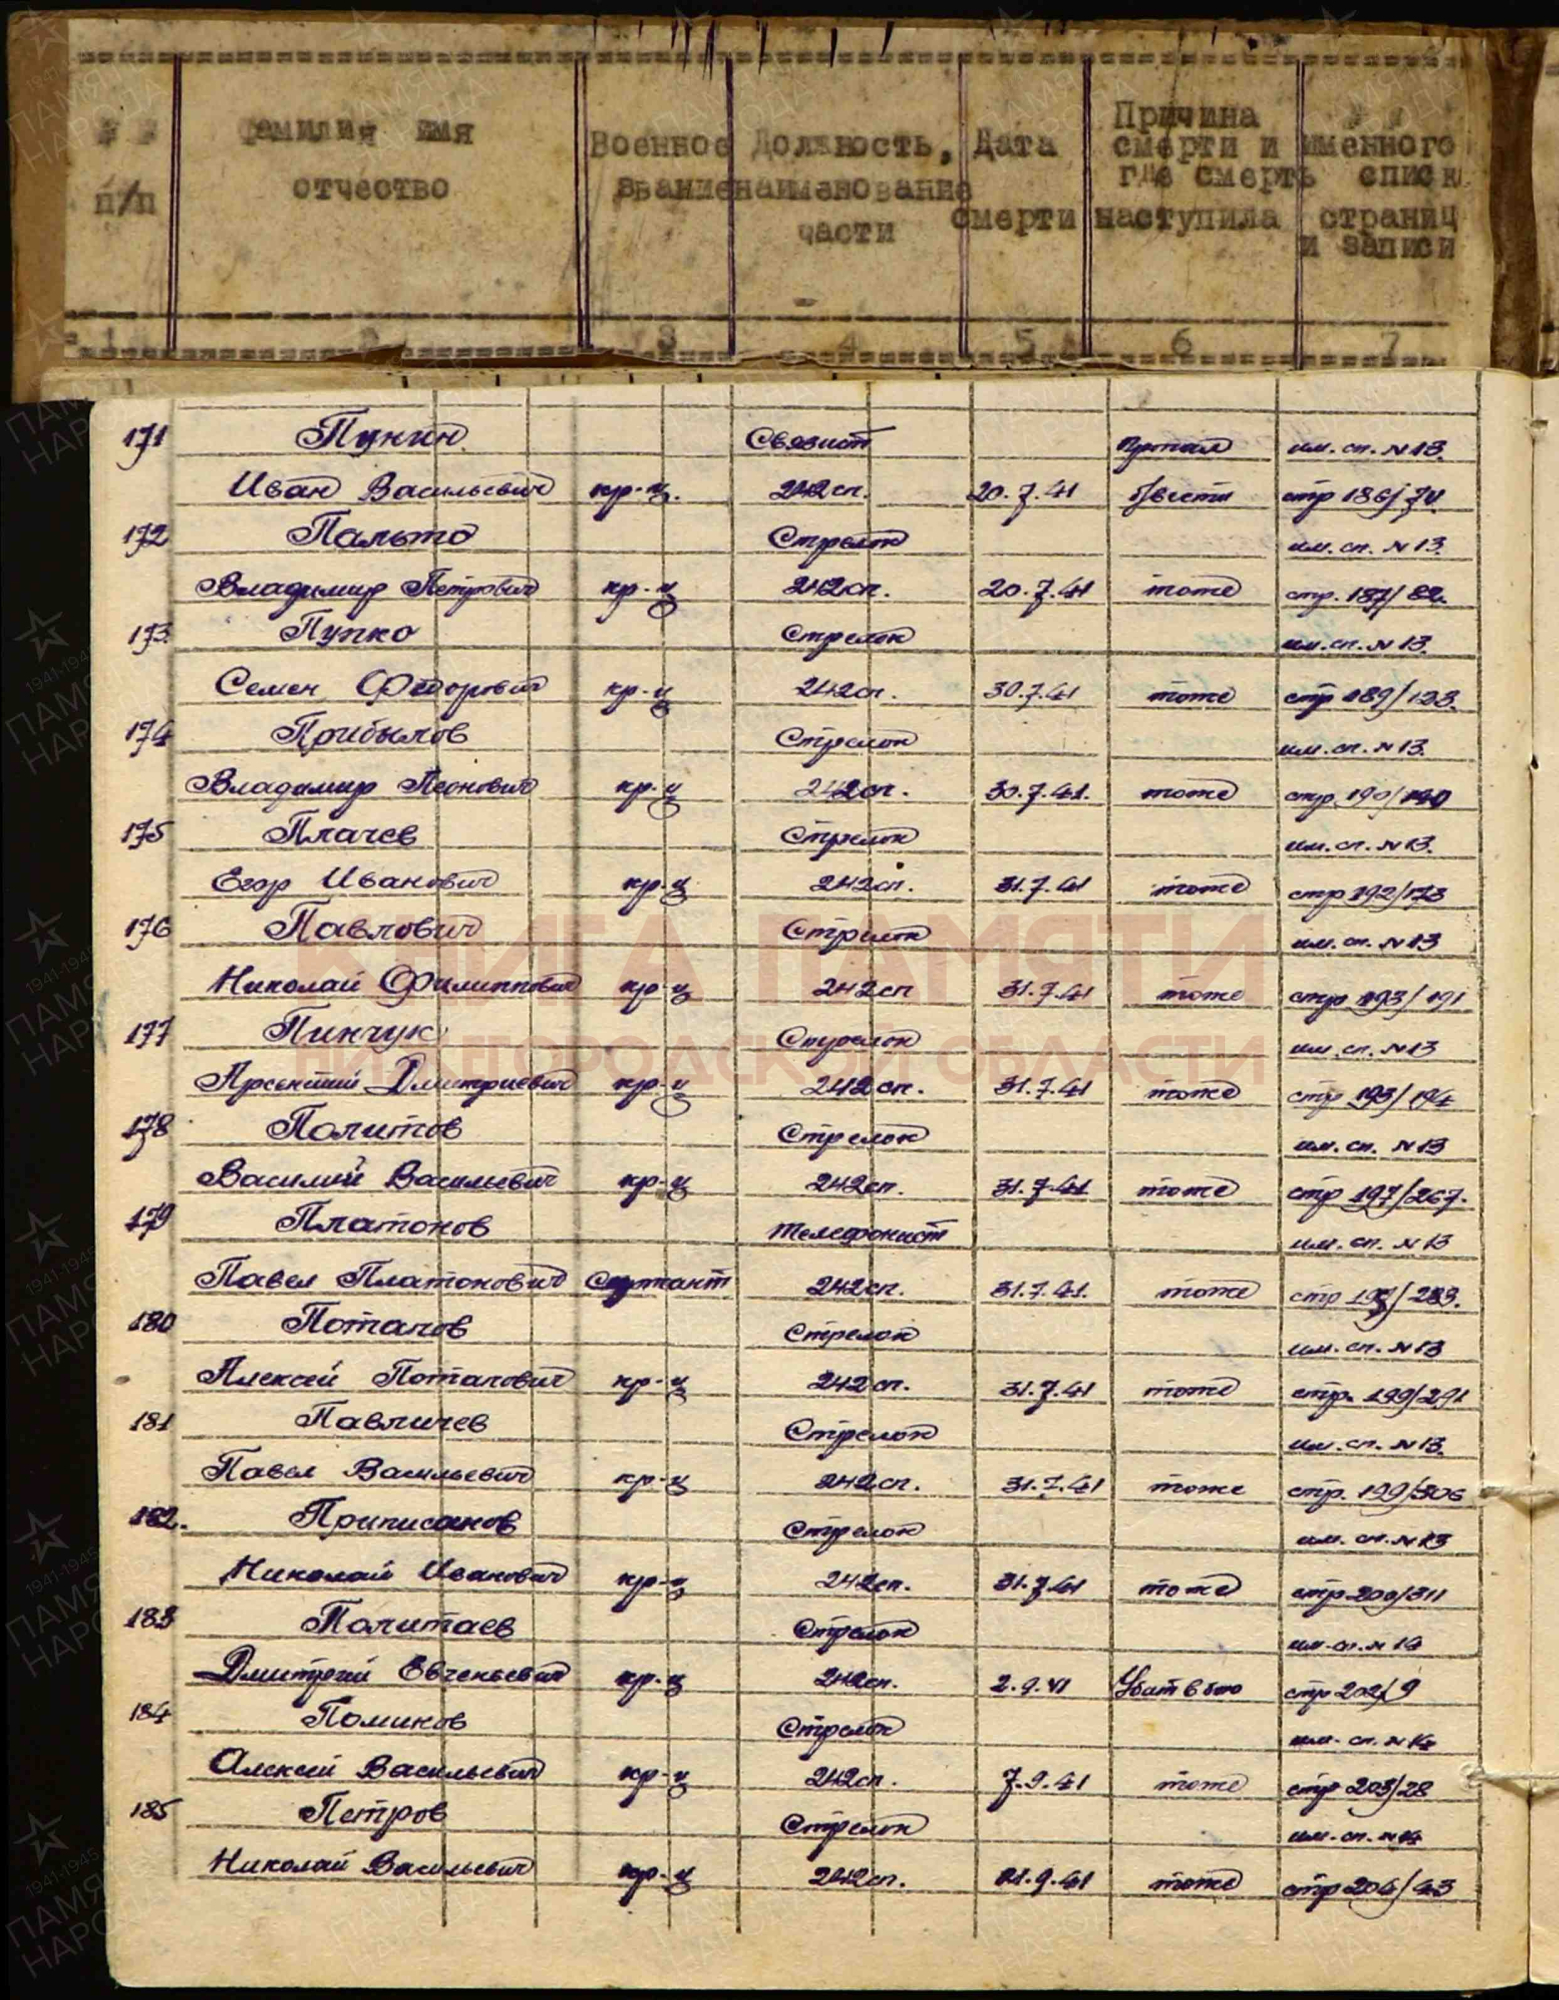 фамилия имя
отчество
п/п
Военное звание
Должность, наименование части
Дата смерти
Причина смерти и где смерть наступила
именного списк страниц и записи
1 2 3 4 5 6 7
171 Пунин Связист пропал им. сп. № 13.
Иван Васильевич кр-ц. 242 сп. 20.7.41 б/вести стр 186/74.
172 Пальто Стрелок им. сп. № 13.
Владимир Петрович кр-ц 242 сп. 20.7.41 тоже стр. 187/82.
173. Пупко Стрелок им. сп. № 13.
Семен Федорович кр-ц 242 сп. 30.7.41 тоже стр 189/123.
174 Прибылов Стрелок им. сп. № 13.
Владимир Леонович кр-ц 242 сп. 30.7.41. тоже стр. 190/140
175 Плачев Стрелок им. сп. № 13.
Егор Иванович кр-ц 242 сп. 31.7.41 тоже стр 192/173
176 Павлович Стрелок им. сп. № 13
Николай Филиппович кр-ц 242 сп 31.7.41 тоже стр 193/191
177 Пинчук Стрелок им. сп. № 13
Арсентий Дмитриевич кр-ц 242 сп. 31.7.41 тоже стр 193/194
178 Политов Стрелок им. сп. № 13
Василий Васильевич кр-ц 242 сп. 31.7.41 тоже стр 197/267.
179 Платонов телефонист им. сп. № 13
Павел Платонович Сержант 242 сп. 31.7.41. тоже стр 283.
180 Потапов Стрелок им. сп. № 13
Алексей Потапович кр-ц 242 сп. 31.7.41 тоже стр. 199/291
181 Павличев Стрелок им. сп. № 13.
Павел Васильевич кр-ц 242 сп. 31.7.41 тоже стр. 199/306
182. Приписанов Стрелок им. сп. № 13
Николай Иванович кр-ц 242 сп. 31.7.41 тоже стр 200/311
183 Политаев Стрелок им. сп. № 14
Дмитрий Евгеньевич кр-ц 242 сп. 2.9.41 Убит в бою стр 202/9
184 Поминов Стрелок им. сп. № 14
Алексей Васильевич кр-ц 242 сп. 7.9.41 тоже стр 203/28
185 Петров Стрелок им. сп. № 14
Николай Васильевич кр-ц 242 сп. 21.9.41 тоже стр 204/43
КНИГА ПАМЯТИ
НИЖЕГОРОДСКОЙ ОБЛАСТИ